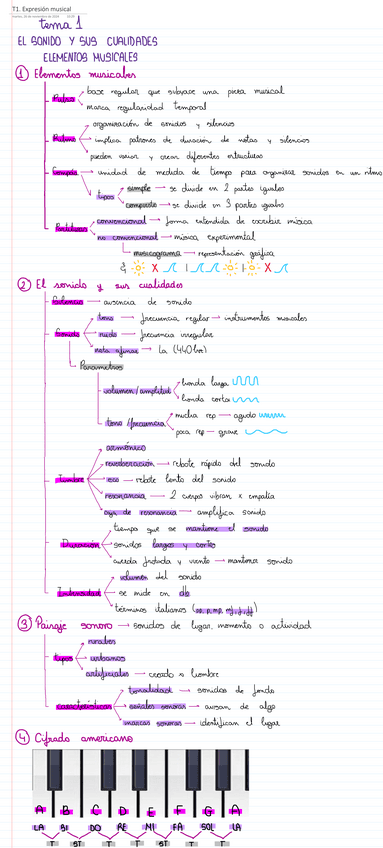 T1. Expresión musical
tema 1
EL SONIDO Y SUS CUALIDADES
ELEMENTOS MUSICALES
① Elementos musicales
Pulso base regular que subyace una pieza musical
marca regularidad temporal
organización de sonidos y silencios
Ritmo implica patrones de duración de notas y silencios
pueden variar y crear diferentes estructuras
Compás → unidad de medida de tiempo para organizar sonidos en un ritmo
tipos simple → se divide en 2 partes iguales
compuesto → se divide en 3 partes iguales
Partituras convencional → forma extendida de escribir música
no convencional → música experimental
musicograma → representación gráfica
② El sonido y sus cualidades
Silencio → ausencia de sonido
tono → frecuencia regular → instrumentos musicales
Sonido ruido → frecuencia irregular
nota afinar → la (440hz)
Parámetros
volumen/amplitud honda larga
honda corta
tono/frecuencia mucha rep → agudo
poca rep → grave
armónico
reverberación → rebote rápido del sonido
Timbre eco → rebote lento del sonido
resonancia → 2 cuerpos vibran x empatía
caja de resonancia → amplifica sonido
tiempo que se mantiene el sonido
Duración sonidos largos y cortos
cuerda frotada y viento → mantener sonido
volumen del sonido
Intensidad se mide en db
términos italianos (pp, p, mp, mf, f, ff)
③ Paisaje sonoro → sonidos de lugar, momento o actividad
rurales
tipos urbanos
artificiales → creado x hombre
tonalidad → sonidos de fondo
características señales sonoras → avisan de algo
marcas sonoras → identifican el lugar
④ Cifrado americano
A B C D E F G A
LA SI DO RE MI FA SOL LA
T ST T T ST T T